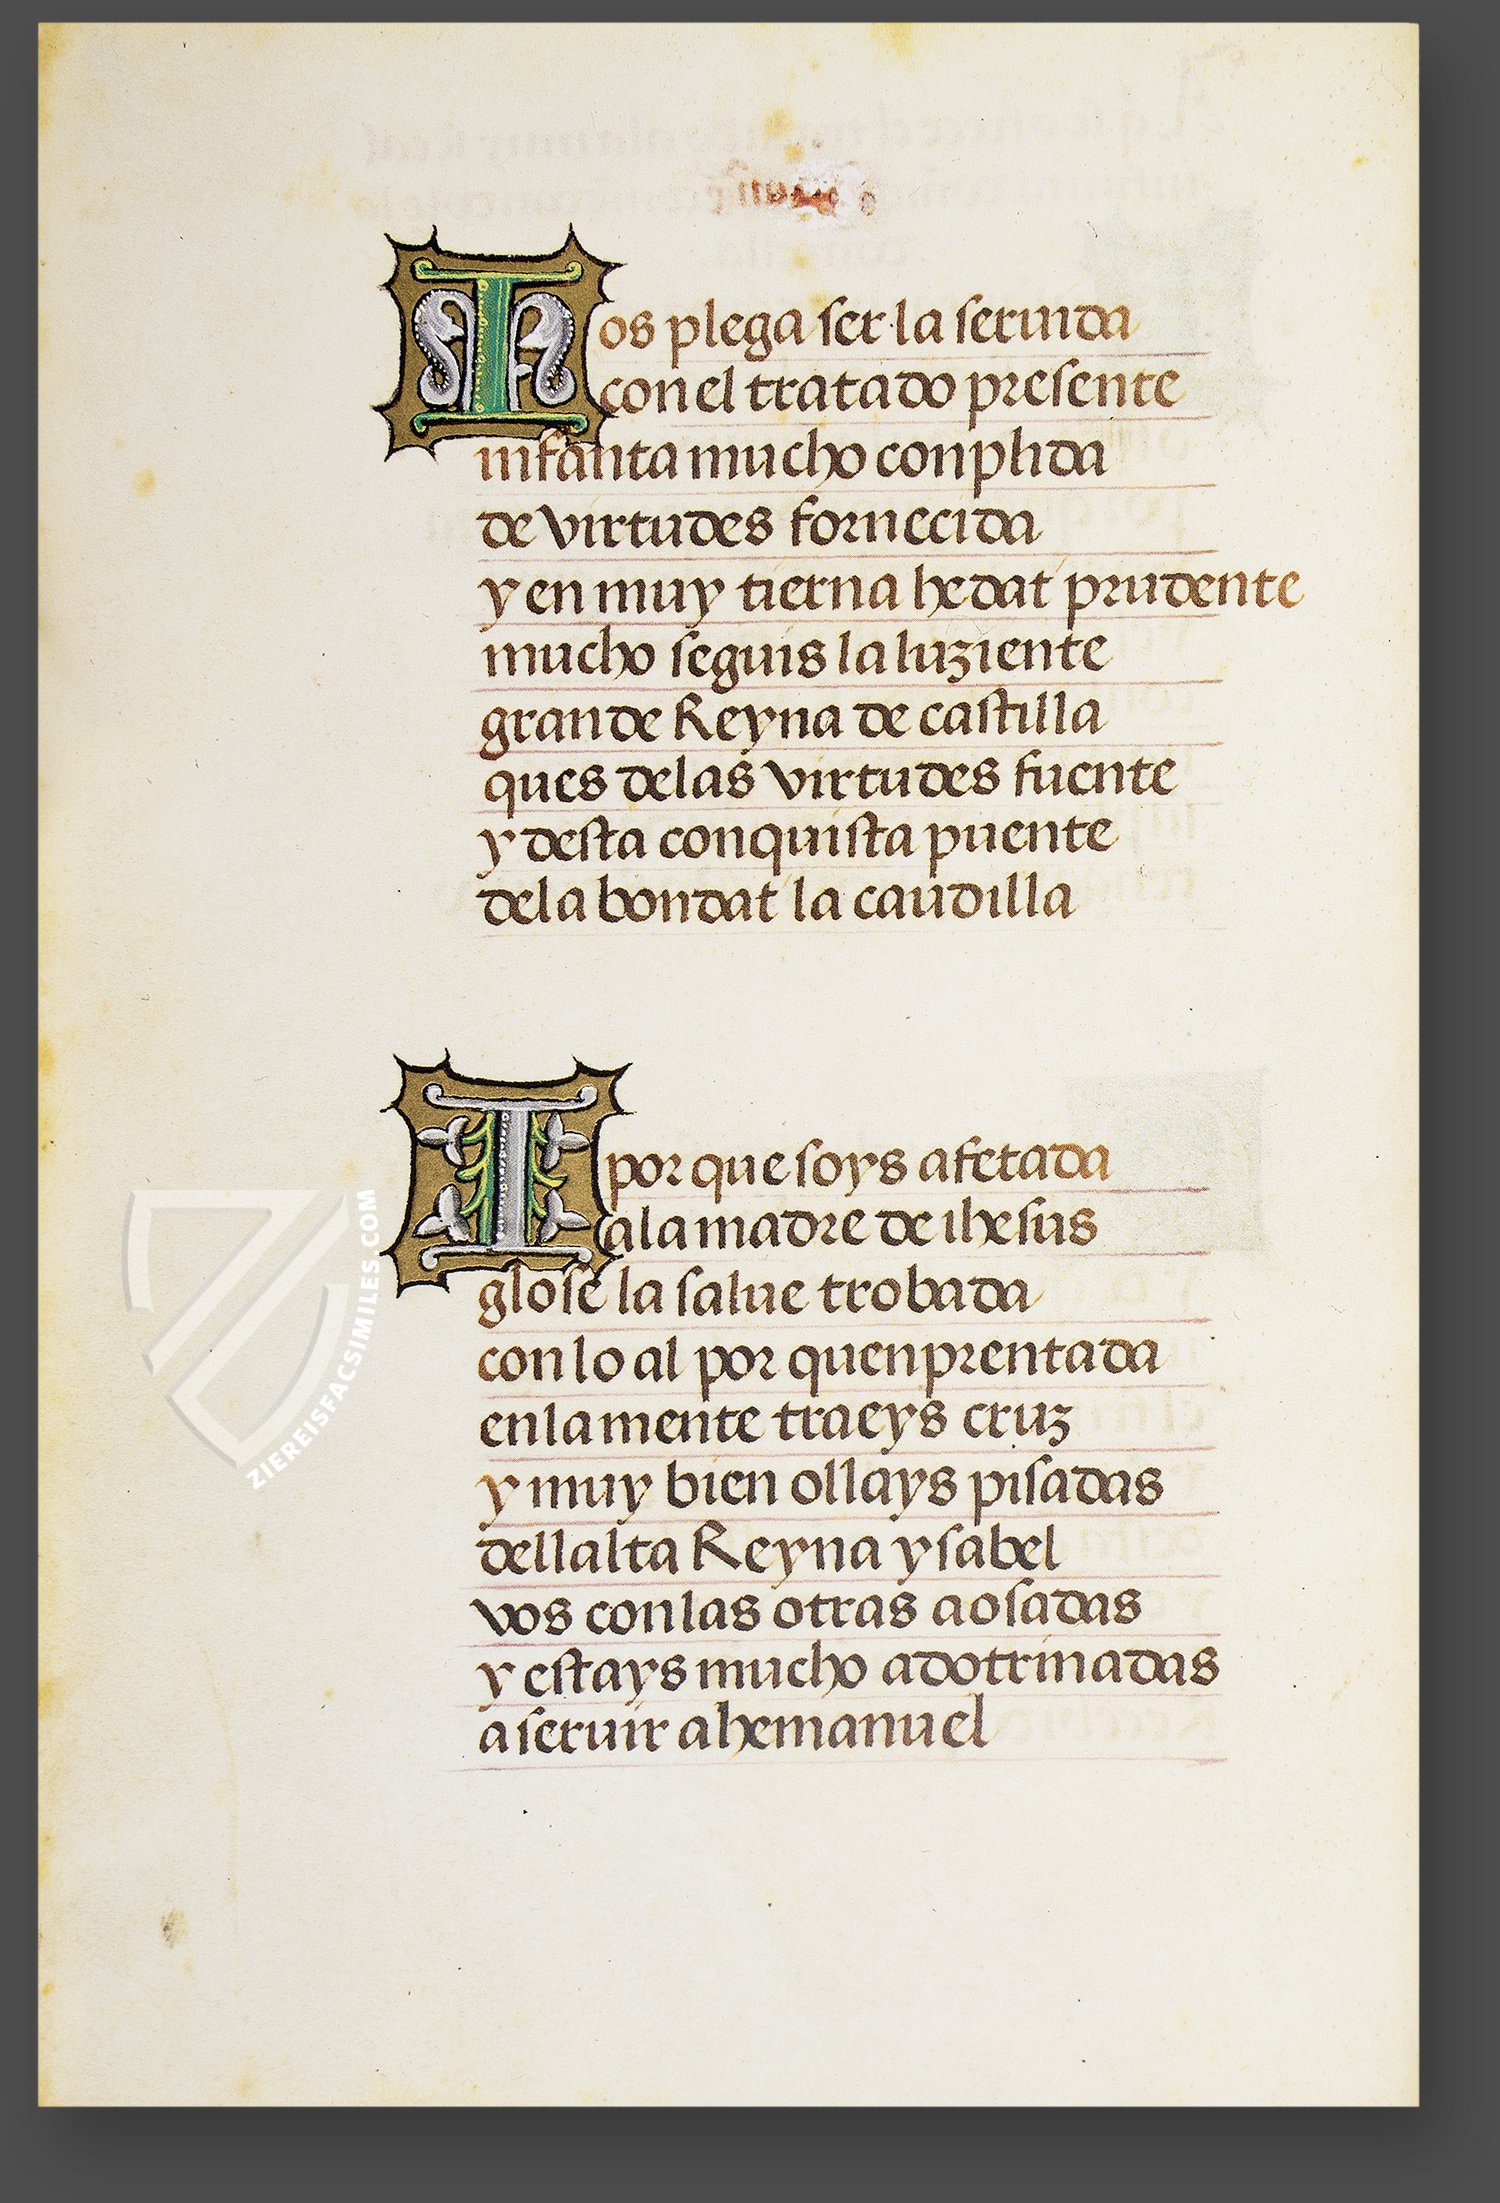 Ios plega ser la seruida
con el tratado presente
infanta mucho conplida
de virtudes fornecida
y en muy tierna hedat prudente
mucho seguis la luziente
grande Reyna de castilla
ques delas virtudes fuente
y desta conquista puente
dela bondat la caudilla
I por que soys afetada
ala madre de ihesus
glose la salue trobada
con lo al por quenprentada
enla mente traeys cruz
y muy bien ollays pisadas
dellalta Reyna ysabel
vos conlas otras aosadas
y estays mucho adotrinadas
a seruir a hemanuel
ZIEREISFACSIMILES.COM